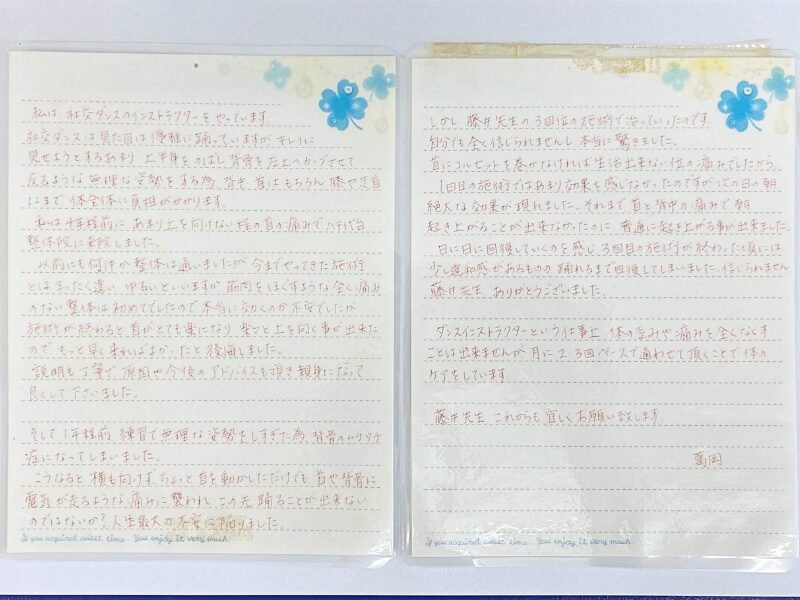 私は 社交ダンスのインストラクターをやっています。
社交ダンスは見た目は優雅に踊っていますが キレイに
見せようとするあまり 上半身をのばし 背骨を左上へカーブさせて
反るような無理な姿勢をする為、背中、首はもちろん 膝や足首
にまで 体全体に負担がかかります。
私は4年程前に あまり上を向けない程の首の痛みで 八千代台
整体院に来院しました。
以前にも何件か整体は通いましたが 今までやってきた施術
とはまったく違い ゆるいといいますか 筋肉をほぐすような 全く痛み
のない整体は初めてでしたので 本当に効くのか不安でしたが
施術が終わると首がとても楽になり 楽々と上を向く事が出来た
ので もっと早く来ればよかったと後悔しました。
説明も丁寧で 原因や今後のアドバイスも頂き 親身になって
良くして下さいました。
そして 1年程前 練習で無理な姿勢をしすぎた為 背骨のムチウチ
症になってしまいました。
こうなると 横も向けず ちょっと首を動かしただけでも 首や背骨に
電気が走るような痛みに襲われ この先 踊ることが出来ない
のではないか! 人生最大の不安に陥りました。
If you acquired sweet time. You enjoy it very much.
しかし 藤井先生の3回位の施術で治っていったのです
自分でも全く信じられませんし 本当に驚きました。
首にコルセットを巻かなければ生活出来ない位の痛みでしたから。
1回目の施術ではあまり効果を感じなかったのですが 次の日の朝
絶大な効果が現れました。それまで 首と背中の痛みで朝
起き上がることが出来なかったのに 普通に起き上がる事が出来ました。
日に日に回復していくのを感じ 3回目の施術が終わった頃には
少し違和感があるものの 踊れるまで回復してしまいました。信じられません
藤井先生 ありがとうございました。
ダンスインストラクターという仕事上 体の歪みや痛みを全くなくす
ことは出来ませんが 月に2.3回ペースで通わせて頂くことで体の
ケアをしています
藤井先生 これからも宜しくお願い致します
髙岡
If you acquired sweet time. You enjoy it very much.